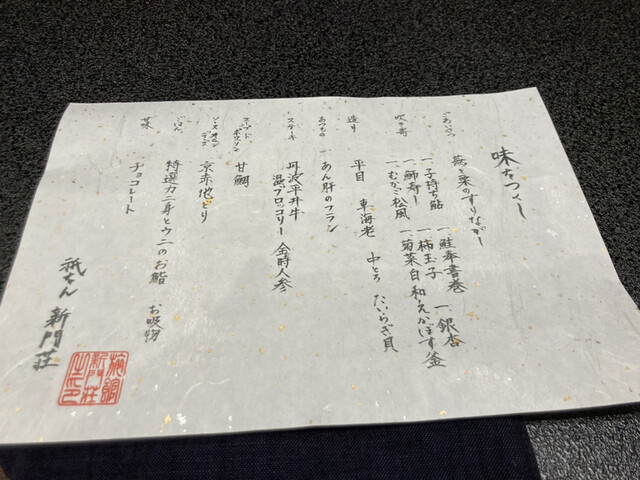 味さつくし
ごあいさつ 蕪と栗のすりながし
吹き寄 一、子持ち鮎 一、鮭奉書巻 一、銀杏
一、鯛寿し 一、柿玉子
一、むかご松風 一、菊菜白和えかぼす釜
造り 平目 車海老 中とろ たいらぎ貝
あつもの 一、あん肝のフラン
ステーキ 丹波平井牛
温ブロッコリー 金時人参
スープド ポワソン 甘鯛
京赤地どり
ごはん 特選カニ身とウニのお鮨 お吸物
菓 チョコレート
祇をん 新門荘